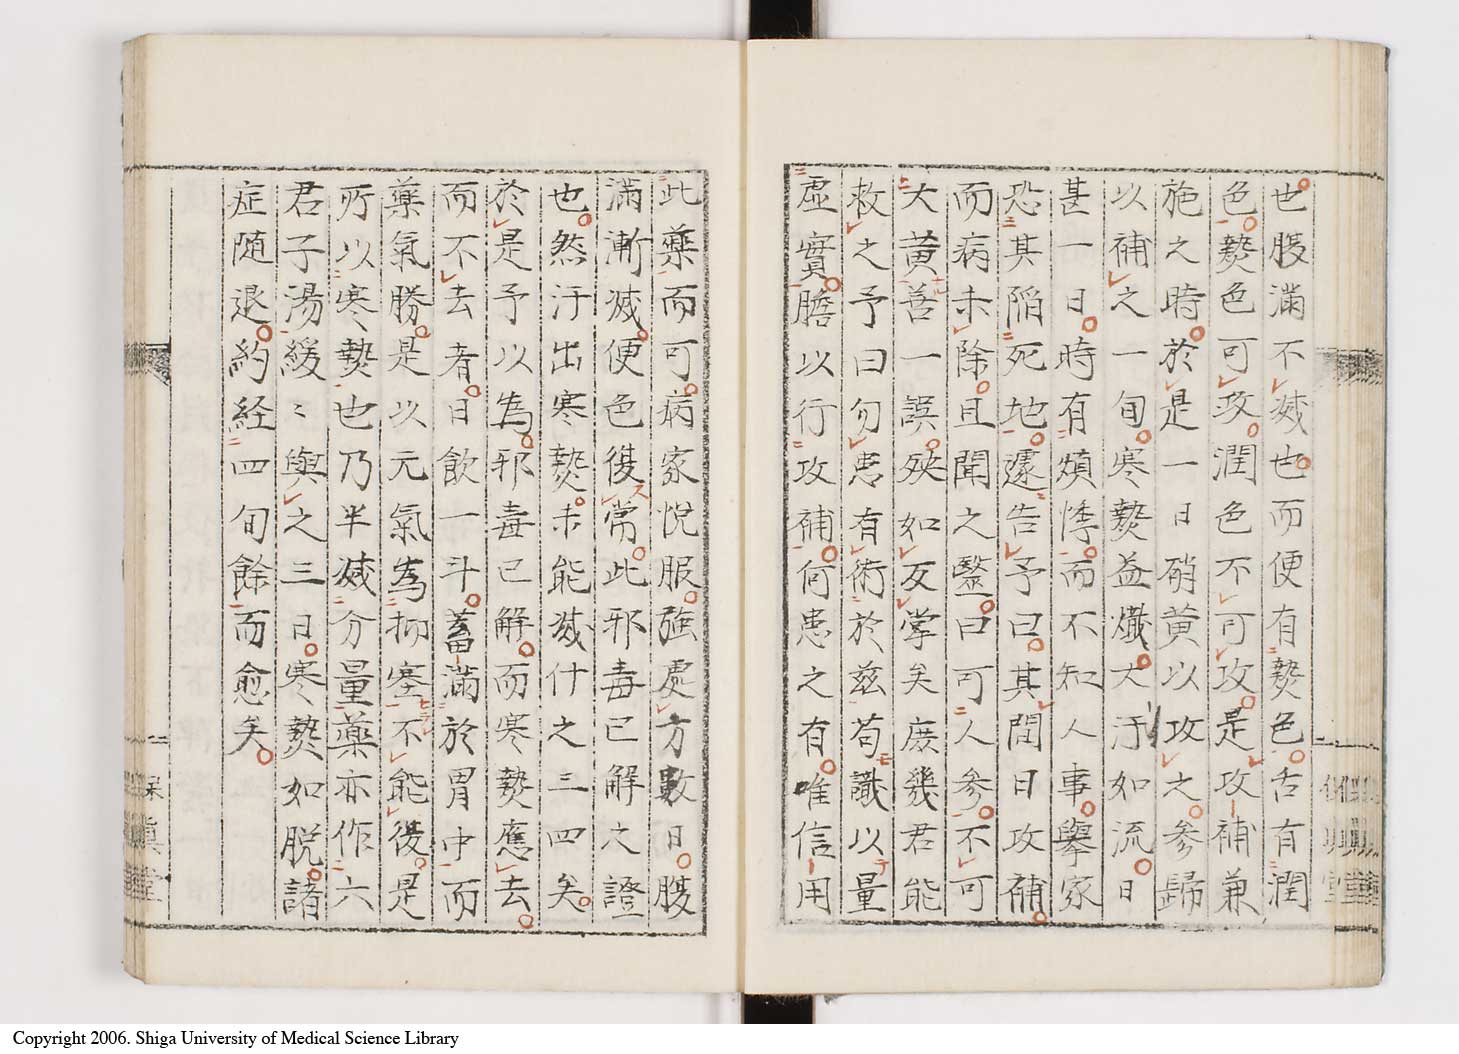 也腹滿不減也而便有𤍠色舌有潤
色𤍠色可攻潤色不可攻是攻補兼
施之時於是一日硝黄以攻之参歸
以補之一旬寒𤍠益熾大汗如流日
甚一日時有煩悸而不知人事擧家
恐其陷死地遽告予曰其間日攻補
而病未除且聞之毉曰可人参不可
大黄善一誤殃如反掌矣庶幾君能
救之予曰勿患有術於兹苟識以量
虚實膽以行攻補何患之有唯信用
此藥而可病家悦服強處方數日腹
滿漸減便色復常此邪毒已解之證
也然汗出寒𤍠未能減什之三四矣
於是予以為邪毒已解而寒𤍠應去
而不去者日飲一斗蓄滿於胃中而
藥氣勝是以元氣為抑塞不能復是
所以寒𤍠也乃半減分量藥亦作六
君子湯緩〻與之三日寒𤍠如脱諸
症随退約経四旬餘而愈矣
Copyright 2006. Shiga University of Medical Science Library